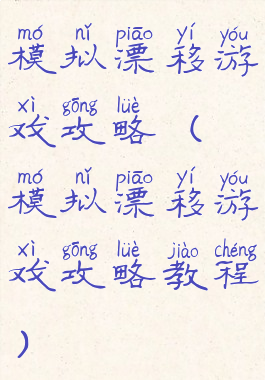 mó nǐ piāo yí yóu
模拟漂移游
xì gōng lüè
戏攻略（
mó nǐ piāo yí yóu
模拟漂移游
xì gōng lüè jiào chéng
戏攻略教程
）